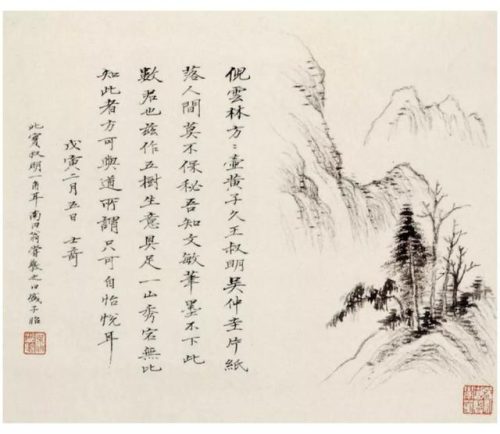 倪雲林方〻壺黃子久王叔明吳仲圭片紙
落人間莫不保秘吾知文敏筆墨不下此
數君也茲作五樹生意具足一山秀宕無比
知此者方可與道所謂只可自怡悅耳
戊寅二月五日 士奇
此實叔明一角耳南田翁嘗